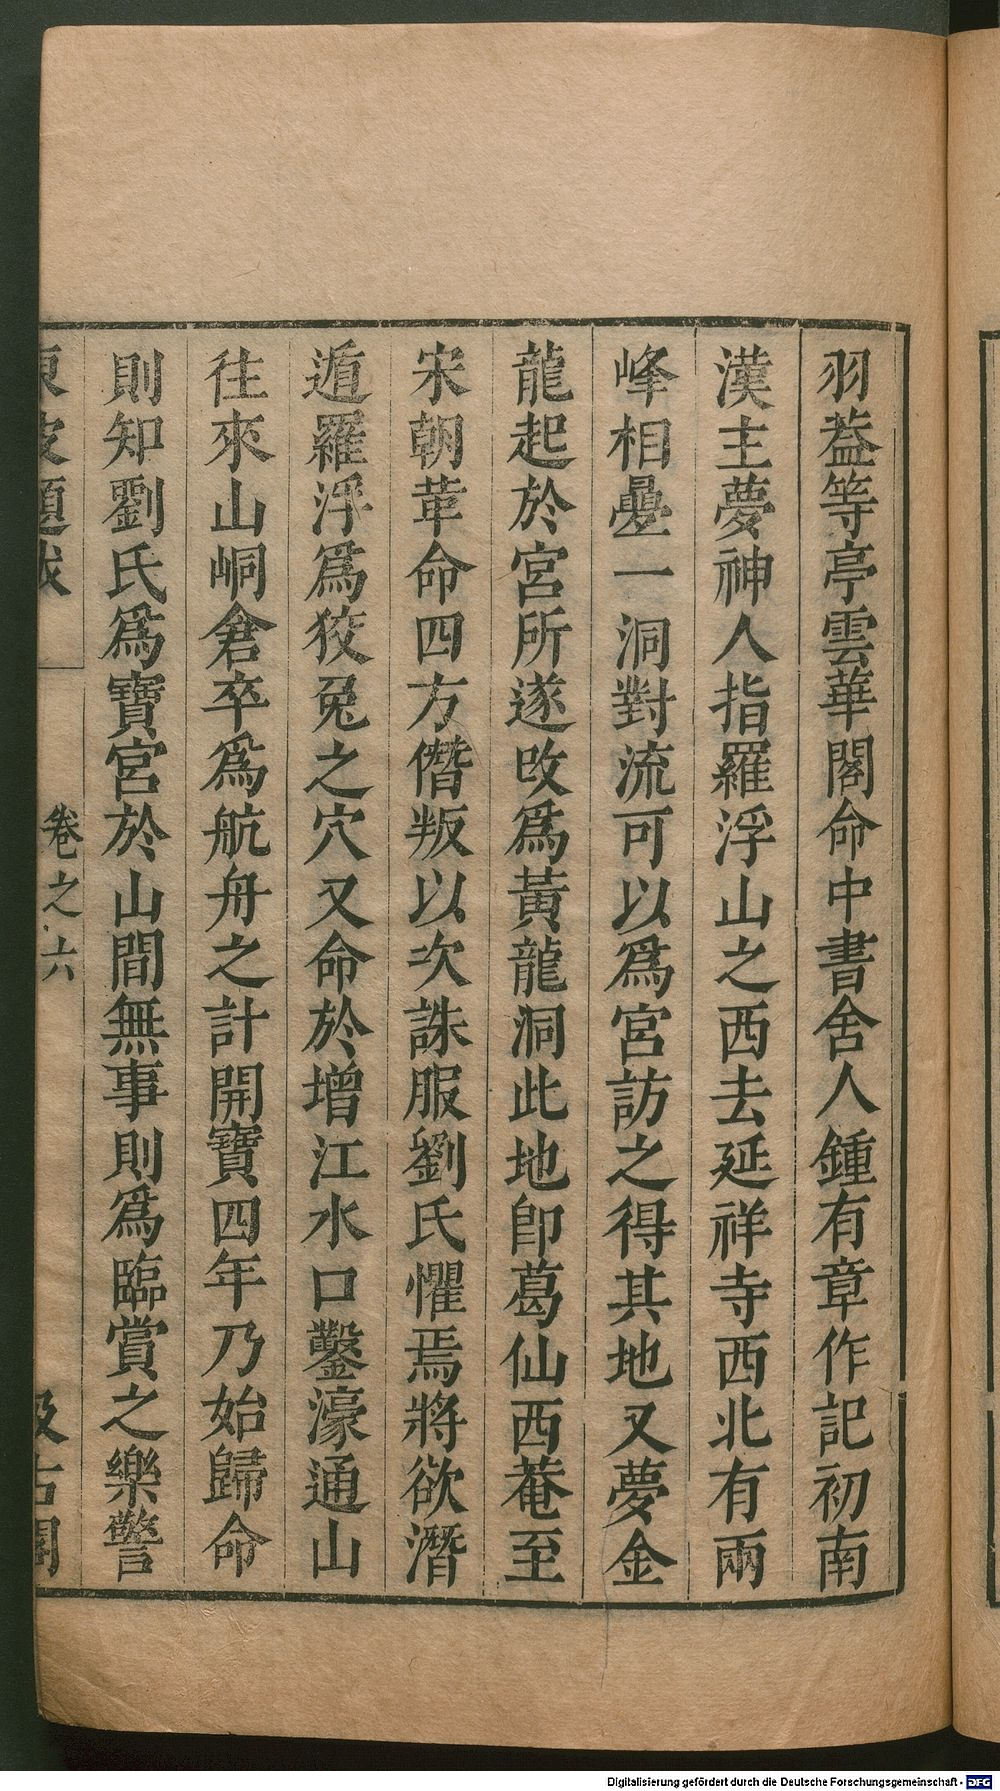 羽葢等亭雲華閣命中書舍人鍾有章作記初南
漢主夢神人指羅浮山之西去延祥寺西北有兩
峰相疊一洞對流可以爲宮訪之得其地又夢金
龍起於宮所遂改爲黃龍洞此地卽葛仙西菴至
宋朝革命四方僭叛以次誅服劉氏懼焉將欲潛
遁羅浮爲狡兔之穴又命於增江水口鑿濠通山
往來山峒倉卒爲航舟之計開寶四年乃始歸命
則知劉氏爲寶宮於山間無事則爲臨賞之樂警
東坡題跋 卷之六 汲古閣
Digitalisierung gefördert durch die Deutsche Forschungsgemeinschaft - DFG